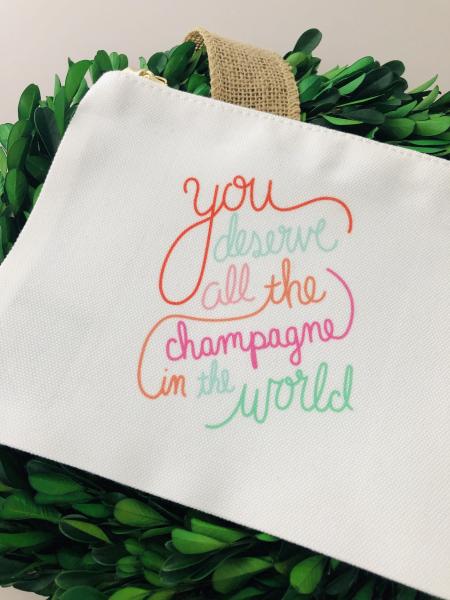 you
deserve
all the
champagne
in the world